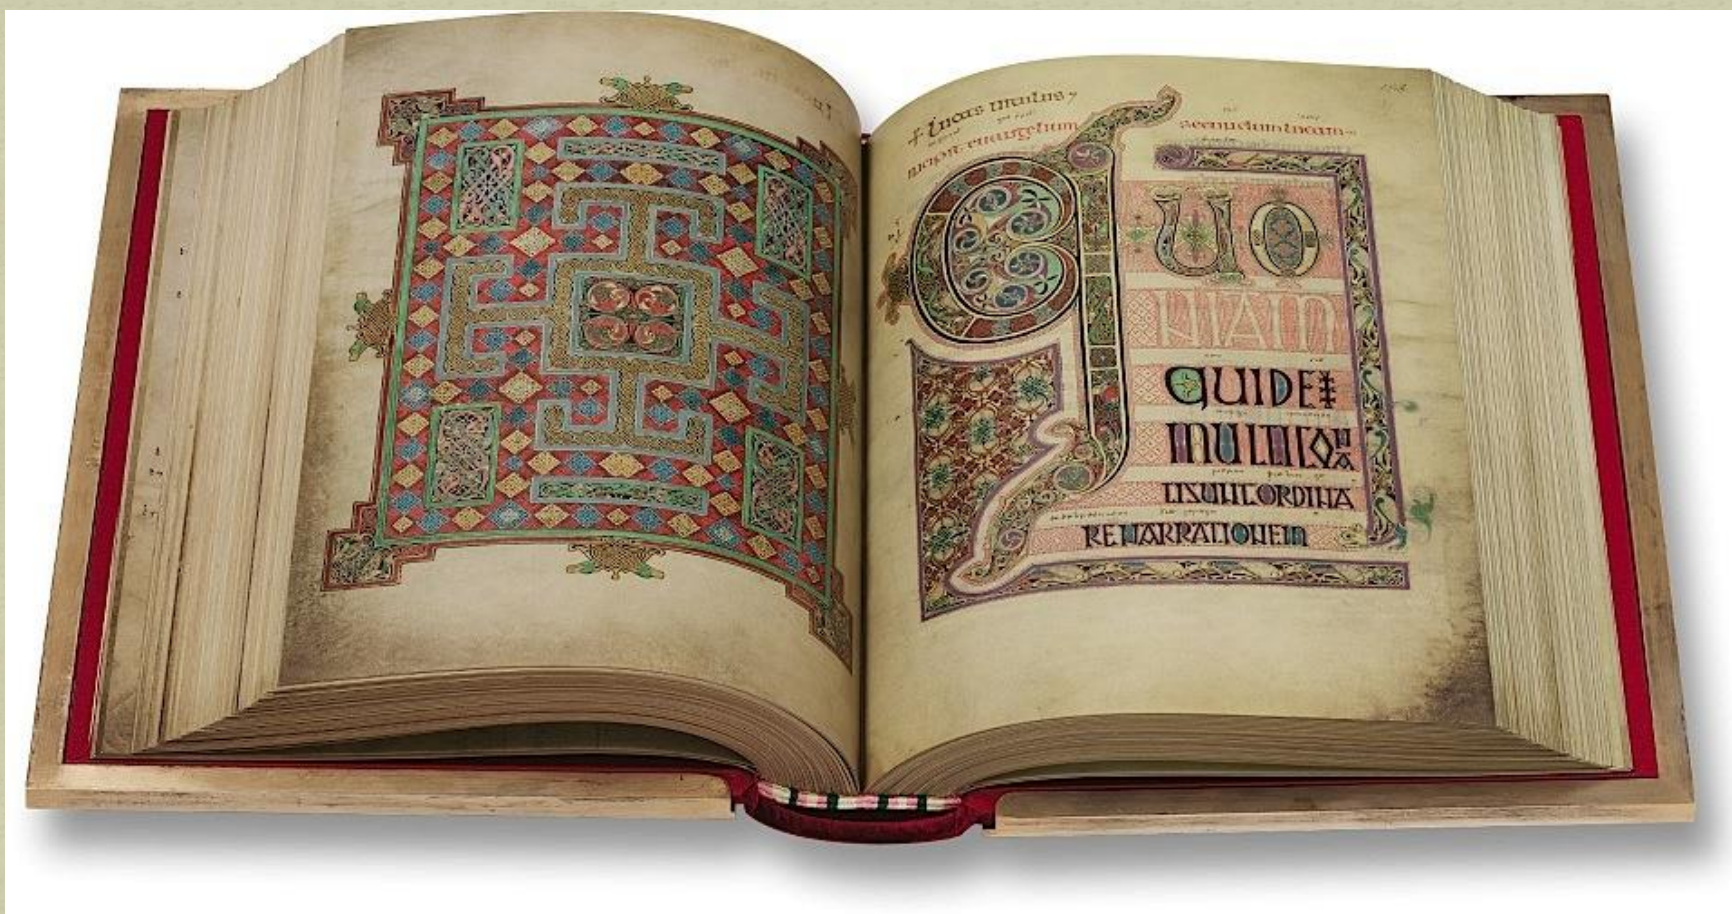 + lucas uitulus
incipit euangelium secundum lucam
QUO
NIAM
QUIDE
MULTI CONA
TI SUNT ORDINA
RE NARRATIONEM